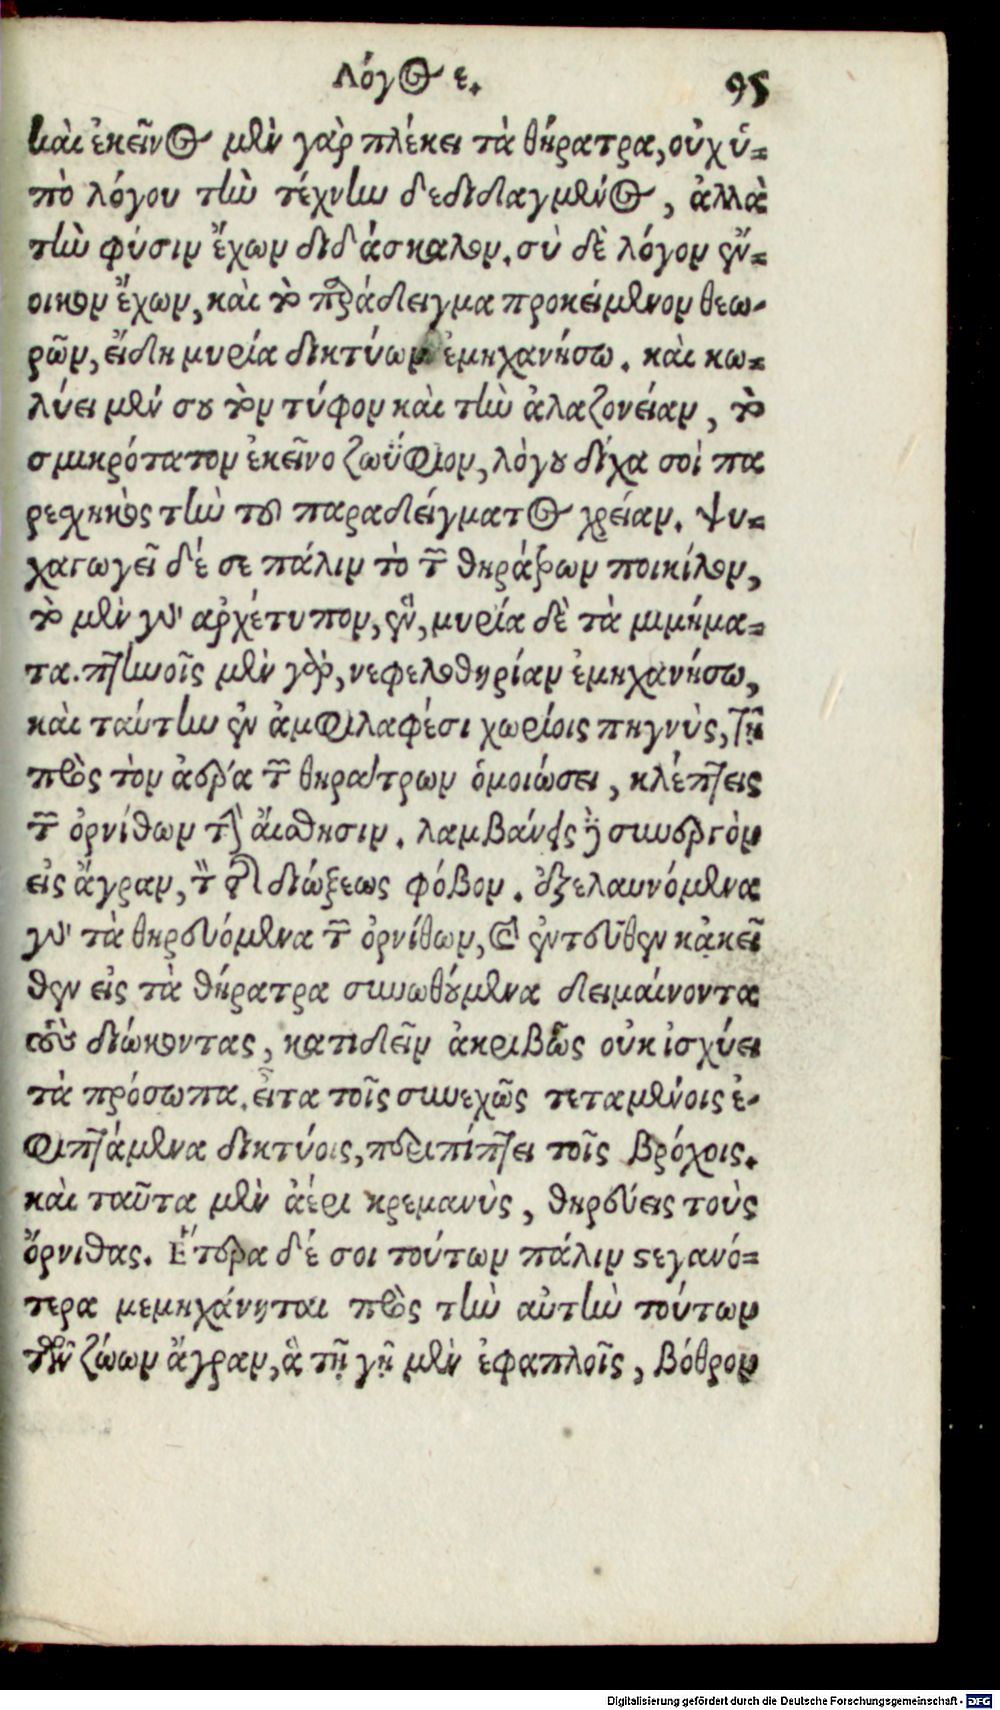 Λόγος ε. 95
καὶ ἐκεῖνος μὲν γὰρ πλέκει τὰ θήρατρα, οὐχ ὑ-
πὸ λόγου τὴν τέχνην δεδιδαγμένος, ἀλλὰ
τὴν φύσιν ἔχων διδάσκαλον. σὺ δὲ λόγον ἔν-
οικον ἔχων, καὶ τὸ παράδειγμα προκείμενον θεω-
ρῶν, εἴδη μυρία δικτύων ἐμηχανήσω. καὶ κω-
λύει μέν σου τὸν τύφον καὶ τὴν ἀλαζονείαν, τὸ
σμικρότατον ἐκεῖνο ζωΰφιον, λόγου δίχα σοὶ πα
ρεσχηκὸς τὴν τοῦ παραδείγματος χρείαν. ψυ-
χαγωγεῖ δέ σε πάλιν τὸ τῶν θηράτρων ποικίλον,
τὸ μὲν γὰρ ἀρχέτυπον, ἓν, μυρία δὲ τὰ μιμήμα-
τα. πτηνοῖς μὲν γὰρ, νεφελοθηρίαν ἐμηχανήσω,
καὶ ταύτην ἐν ἀμφιλαφέσι χωρίοις πηγνὺς, τῇ
πρὸς τὸν ἀέρα τῶν θηράτρων ὁμοιώσει, κλέπτεις
τῶν ὀρνίθων τὴν αἴσθησιν. λαμβάνεις δὲ συνεργὸν
εἰς ἄγραν, τὸν τῆς διώξεως φόβον. ἐξελαυνόμενα
γὰρ τὰ θηρευόμενα τῶν ὀρνίθων, καὶ ἐντεῦθεν κἀκεῖ
θεν εἰς τὰ θήρατρα συνωθούμενα δειμαίνοντα
τοὺς διώκοντας, κατιδεῖν ἀκριβῶς οὐκ ἰσχύει
τὰ πρόσωπα. εἶτα τοῖς συνεχῶς τεταμένοις ἐ-
φιπτάμενα δικτύοις, περιπίπτει τοῖς βρόχοις.
καὶ ταῦτα μὲν ἀέρι κρεμανὺς, θηρεύεις τοὺς
ὄρνιθας. Ἕτερα δέ σοι τούτων πάλιν στεγανό-
τερα μεμηχάνηται πρὸς τὴν αὐτὴν τούτων
τῶν ζώων ἄγραν, ἃ τῇ γῇ μὲν ἐφαπλοῖς, βόθρον
Digitalisierung gefördert durch die Deutsche Forschungsgemeinschaft - DFG